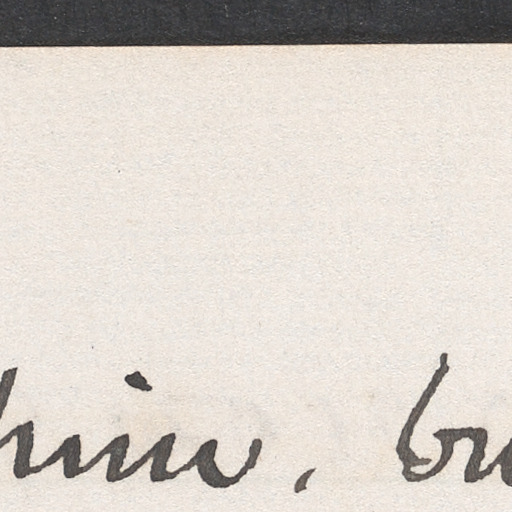 him, bu